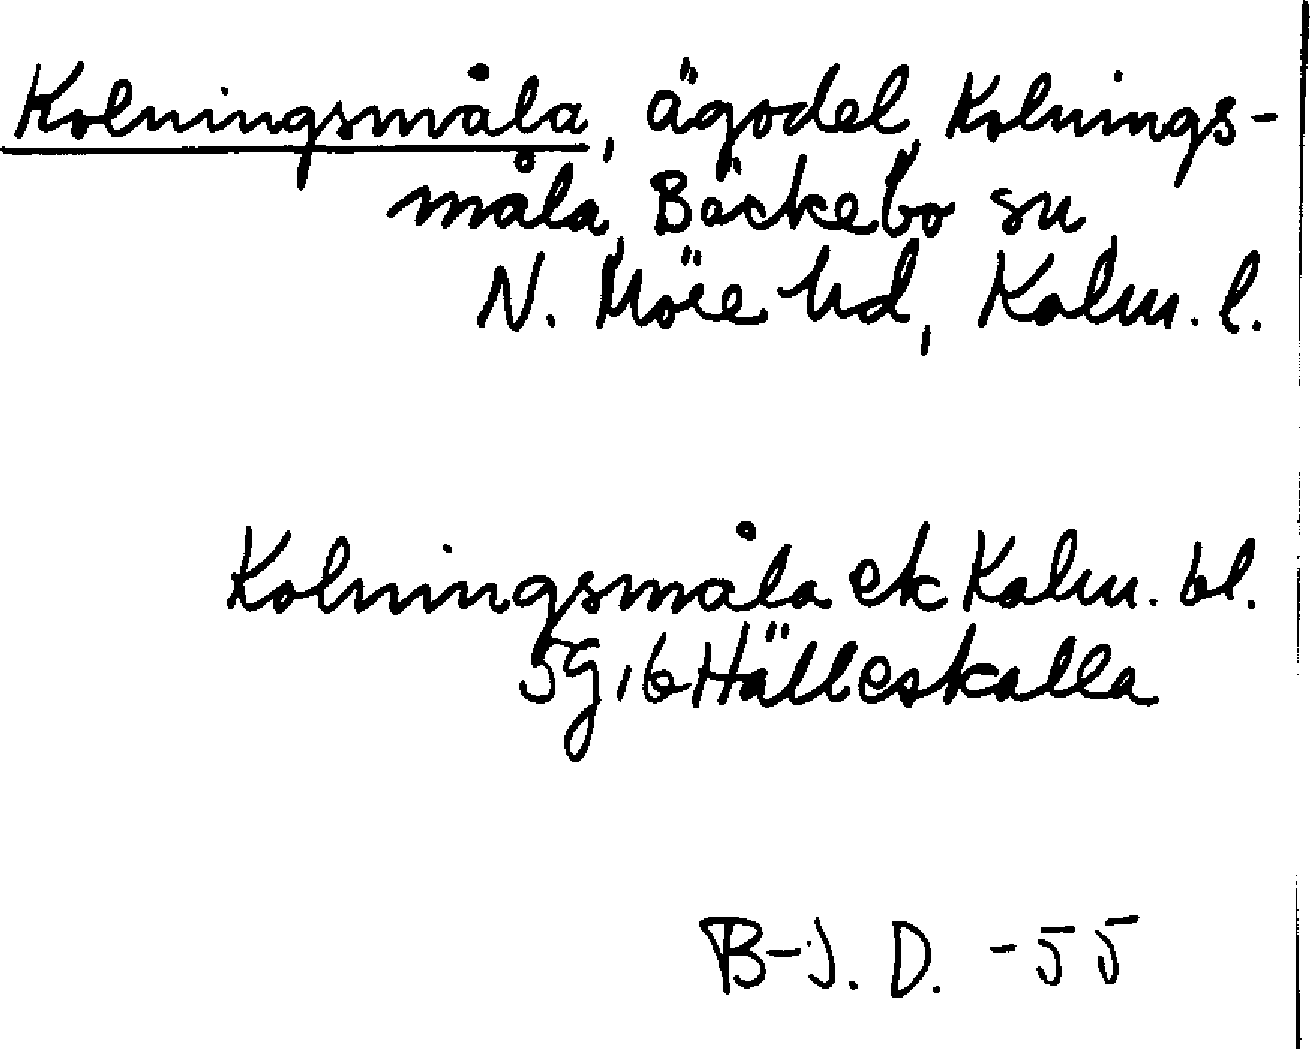 Kolningsmåla, ägodel, Kolnings-
måla, Bäckebo sn
N. Möre hd, Kalm. l.
Kolningsmåla ek Kalm. bl.
5g, 6 Hälleskalla
B-J. D. -55